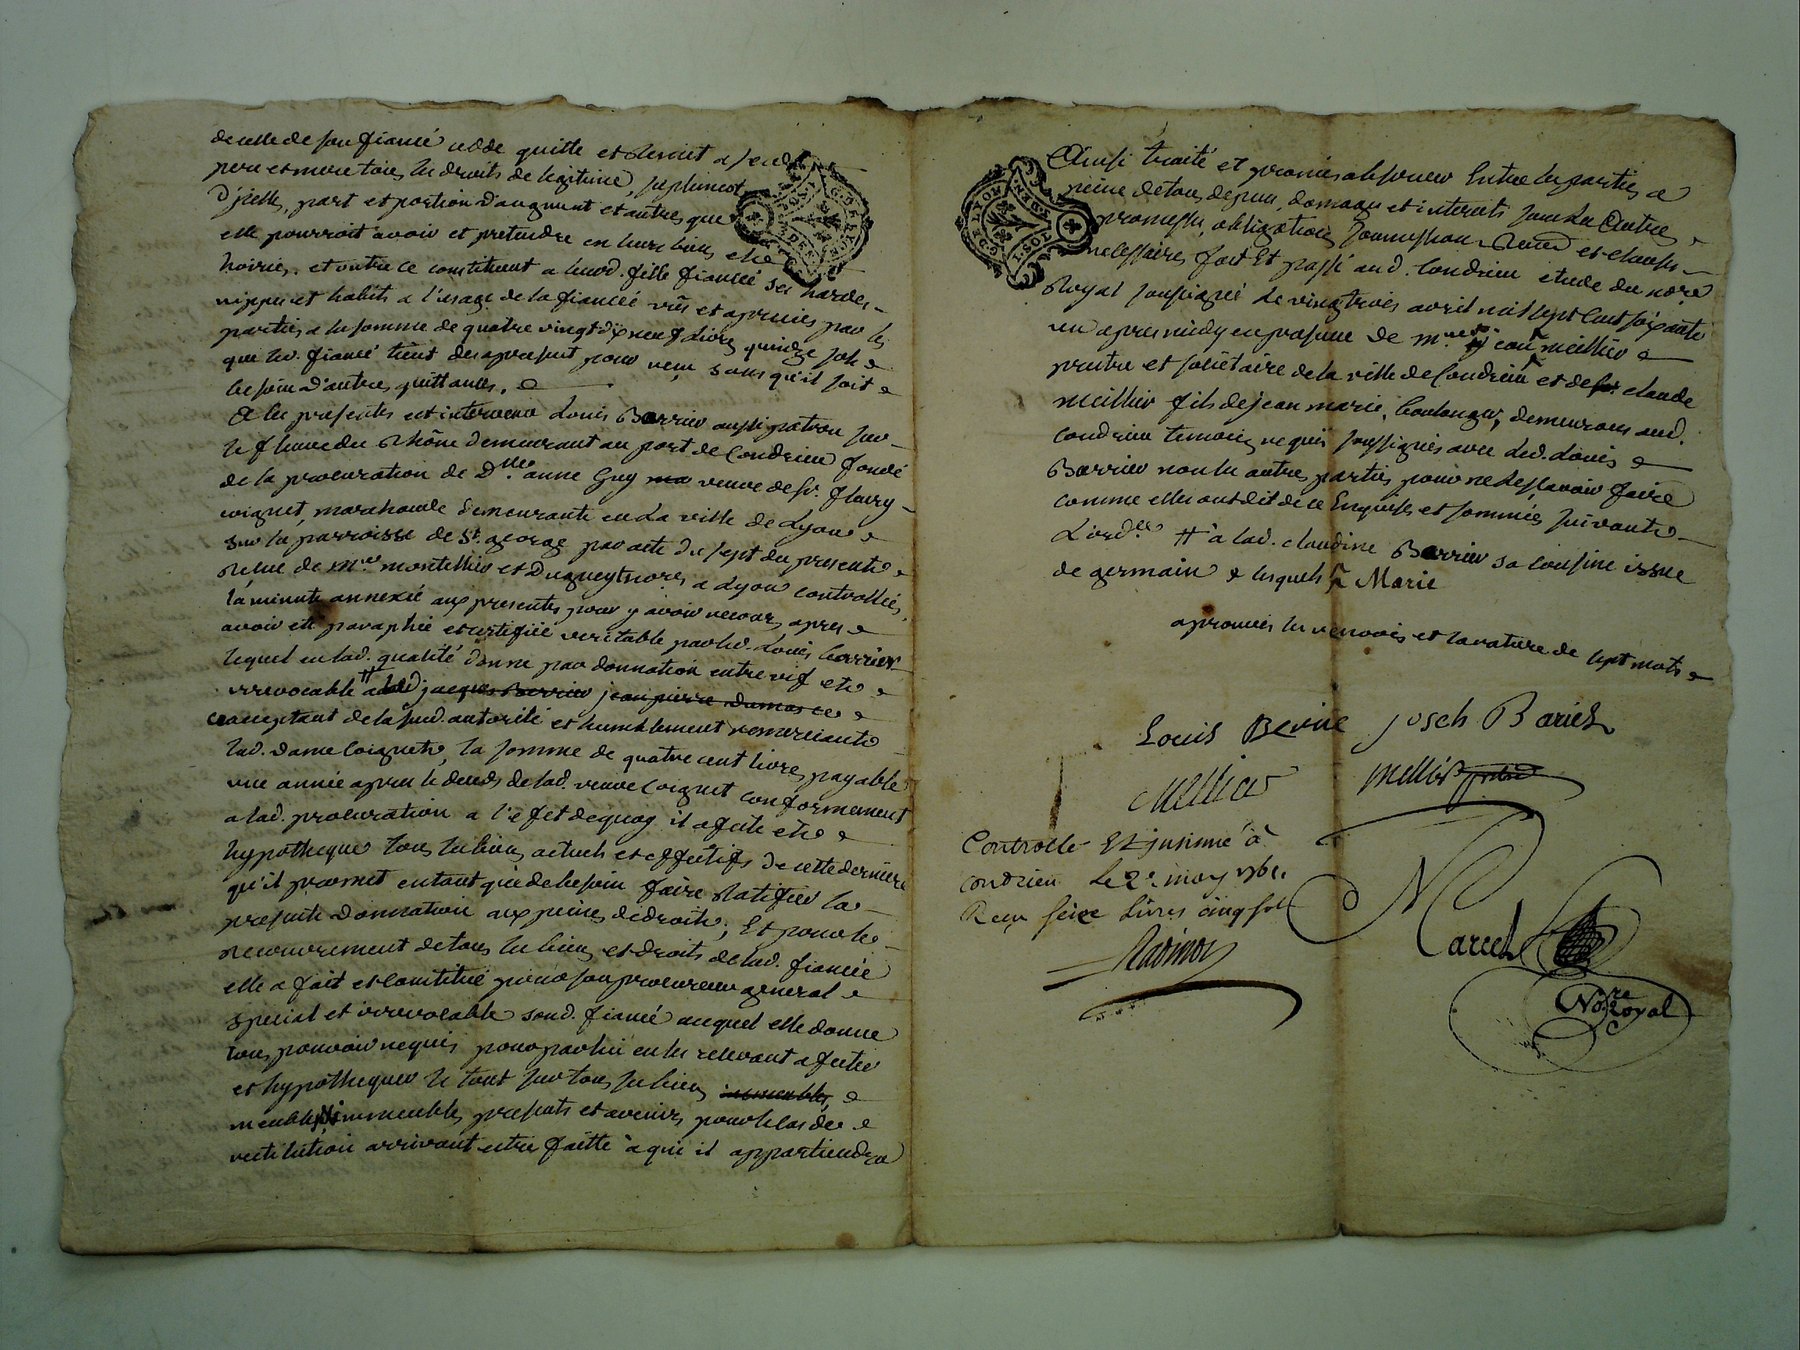 de celle de son fiancé cedde quitte et remet a sesd.
pere et mere tous les droits de legitime suplement
d'jcelle, part et portion d'augment et autres que
elle pourroit avoir et pretendre en leurs biens et
hoiries. et outre ce constituent a leurd. fille fiancée ses hardes
nippes et habits a l'usage de la fiancée vus et apreciés par les
parties a la somme de quatre vingt dix neuf livres quinze sols
que led. fiancé tient des apresent pour reçu sans qu'il soit
besoin d'autre quittance.
A les presentes est intervenu Louis Barrier aussi patron sur
le fleuve du Rhône demeurant au port de Condrieu fondé
de la procuration de Dlle. anne Guy veuve de sr. fleury
coignet, marchande demeurante en la ville de Lyon
sur la parroisse de St. george par acte du sept du present
Reçue de me. montellier et Dugueyt nores. a Lyon controllée,
la minute annexée aux presentes pour y avoir recours, apres
avoir eté paraphée et certifiée veritable par led. Louis barrier
lequel en lad. qualité donne par donnation entre vif et
irrevocable # a lad jacques Barrier jean pierre dumas ce
acceptant de la susd. autorité et humblement remerciante
lad. dame Coignet, la somme de quatre cent livres payable
une année apres le deceds de lad. veuve Coignet conformement
a lad. procuration a l'efet de quoy il afecte et
hypotheque tous les biens actuels et effectifs de cette derniere
qu'il promet en tant que de besoin faire Ratifier la
presente donnation aux peines de droit; Et pour le
recouvrement de tous les biens et droits de lad. fiancée
elle a fait et constitué pour son procureur general
special et irrevocable sond. fiancé auquel elle donne
tous pouvoirs requis pour par lui en les recevant afecter
et hypothequer le tout sur tous ses biens immeubles
meubles immeubles presents et avenir, pour le cas de
restitution arrivant estre faitte à qui il appartiendra
Ainsi traité et promis observer Entre les parties a
peine de tous depens, domages et interets sous les Autres
promesses, obligations, soumissions, Renon. et clauses
necessaires fait Et passé aud. Condrieu etude du nore.
Royal soussigné Le vingt trois avril mil sept cent soixante
un apres midy en presence de me. jean meillier
pretre et societaire de la ville de Condrieu et de sr. claude
meillier fils de jean marie, boulanger, demeurans aud.
Condrieu temoins requis soussignés avec led. Louis
Barrier non les autres parties pour ne le sçavoir faire
comme elles ont dit de ce Enquises et sommées suivant
L'orde. # à lad. claudine Barrier sa cousine issue
de germain & lesquels Marie
aprouvés les renvois et la rature de sept mots
Louis Berrie josch Bariel
Mellier Mellier
Controllé Et jnsinué à
Condrieu Le 2e. may 1761.
Reçu seize Livres cinq sols
Marcel
Nore Royal